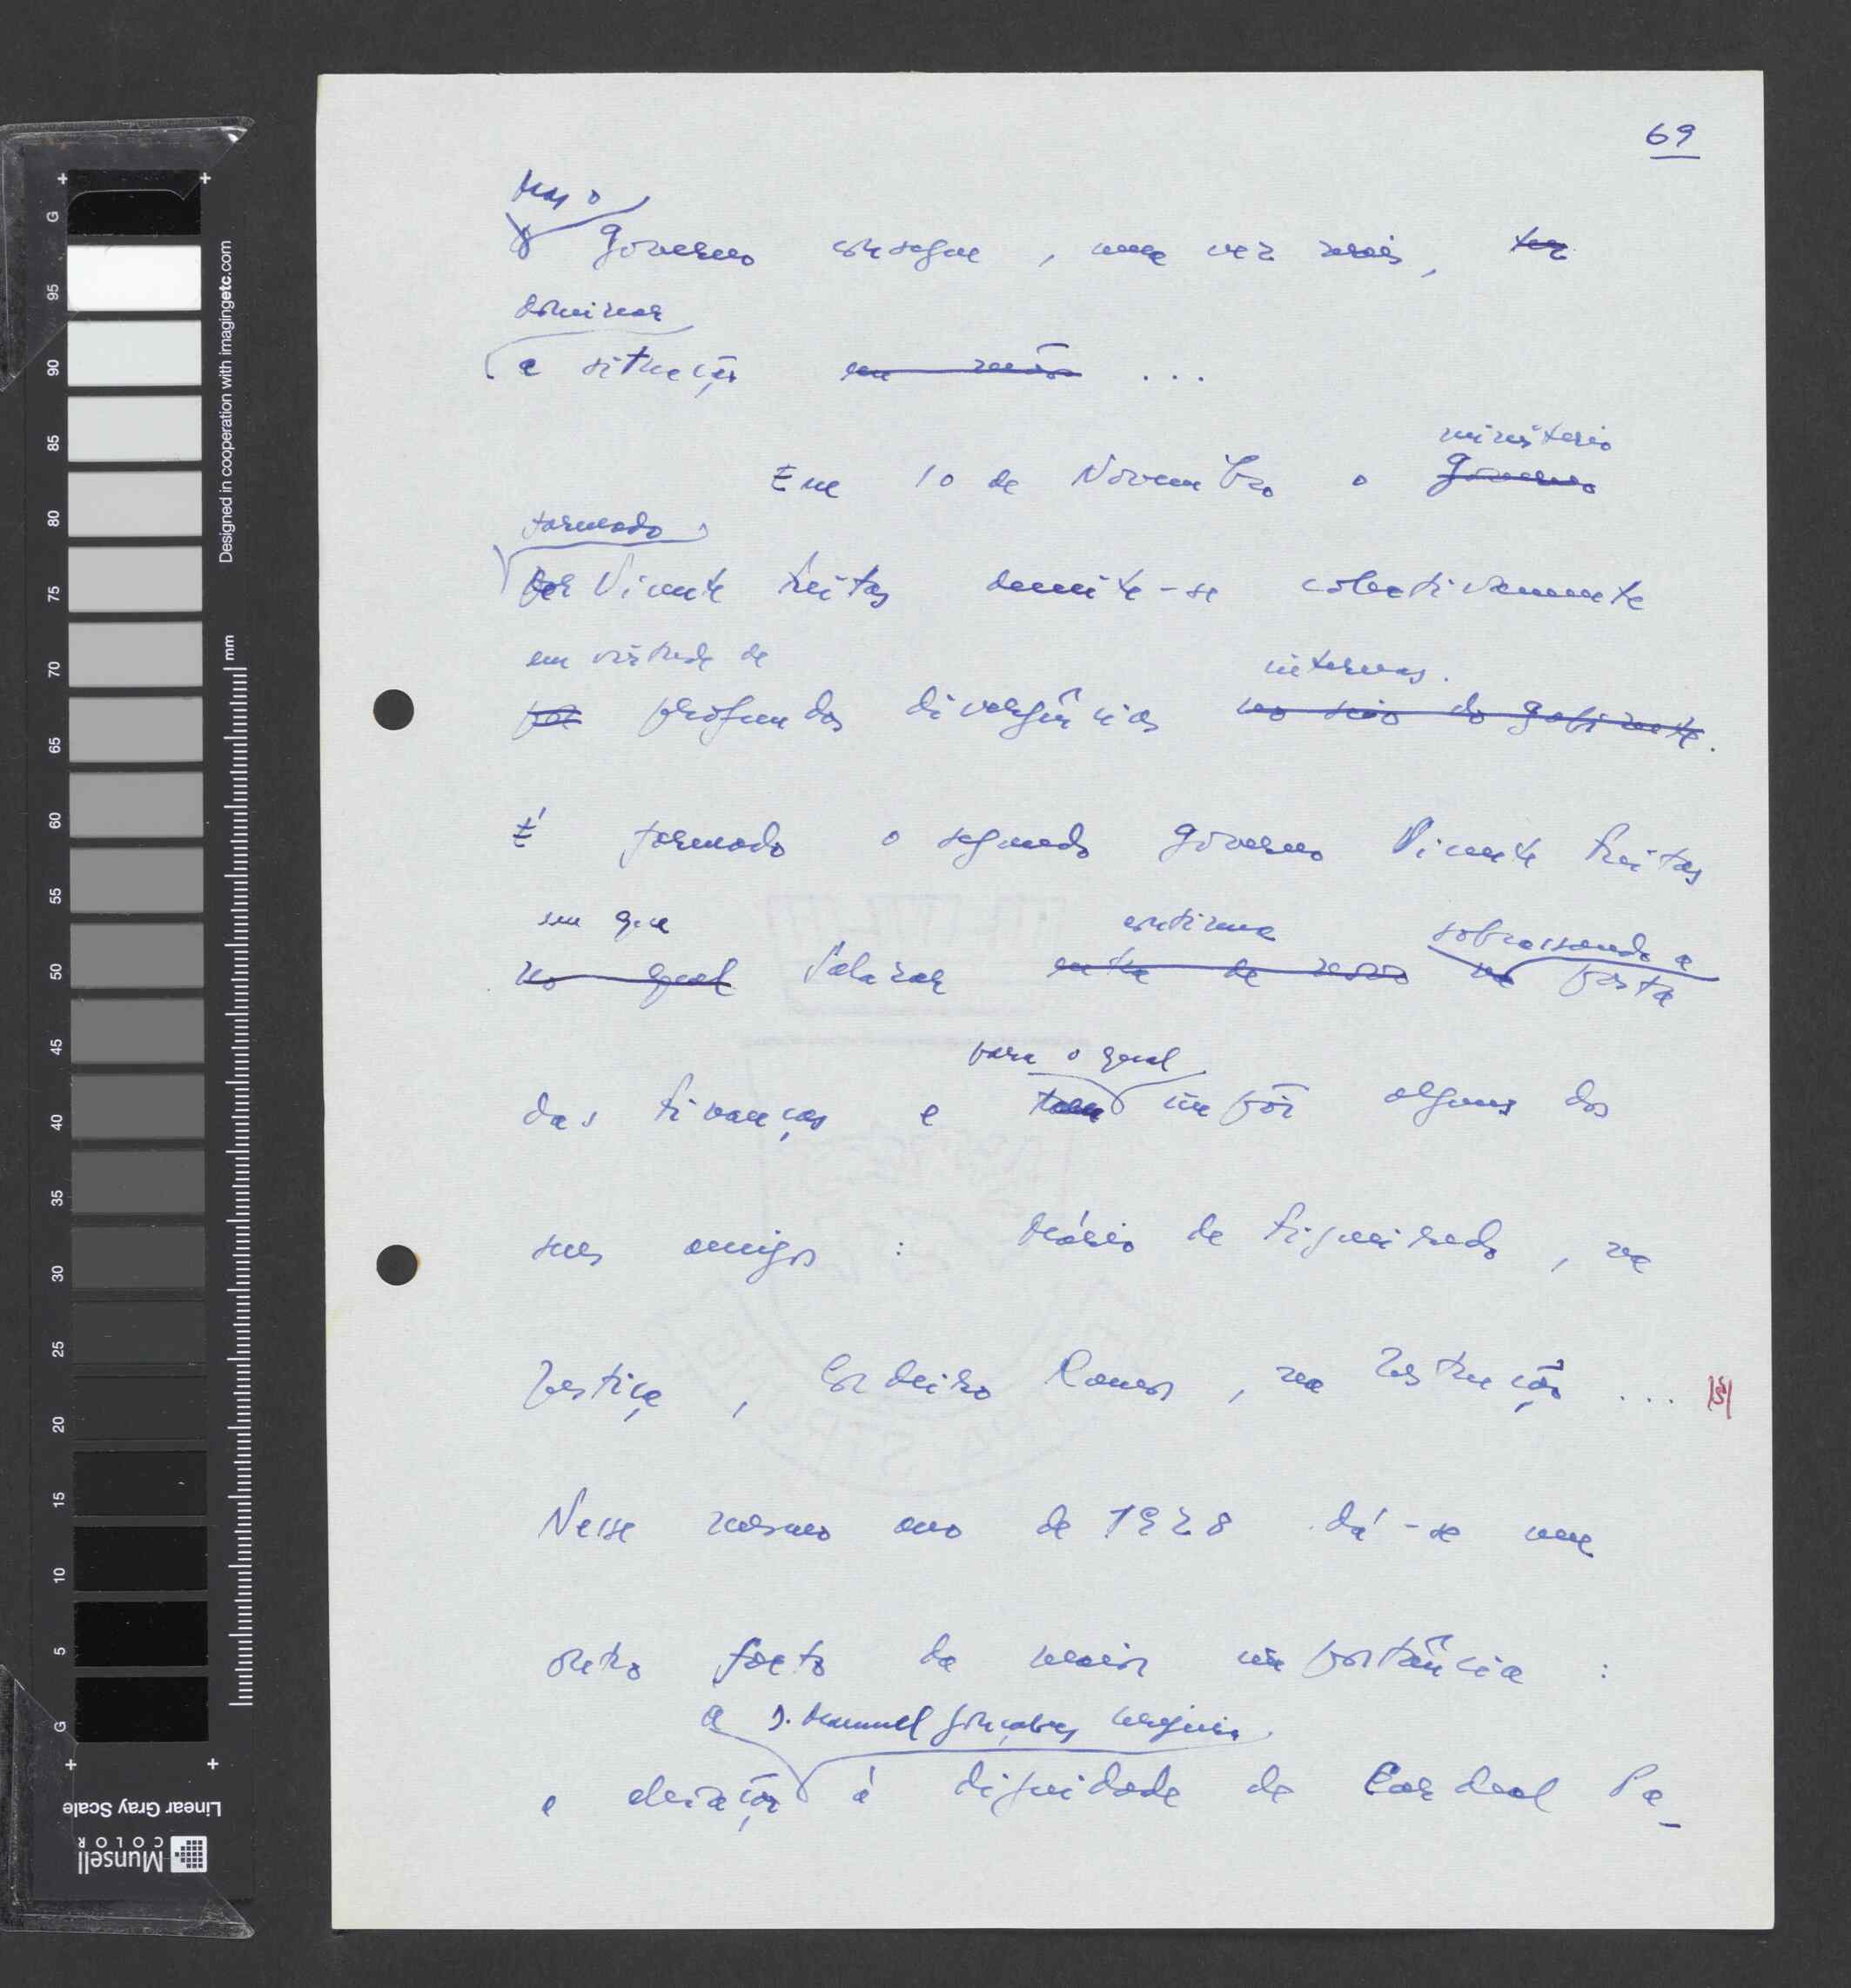 69
Mas o
O Governo consegue, uma vez mais, ter
dominar
a situação em mão ...
ministério
Em 10 de Novembro o Governo
formado
por Vicente Freitas demite-se colectivamente
em virtude de internas.
por profundas divergências no seio do gabinete.
É formado o segundo governo Vicente Freitas
em que continua sobraçando a
no qual Salazar entra de novo na pasta
para o qual
das Finanças e impõe alguns dos
seus amigos : Mário de Figueiredo, na
Justiça, Cordeiro Ramos, na Instrução ...
Nesse mesmo ano de 1928 dá-se um
outro facto da maior importância :
de D. Manuel Gonçalves Cerejeira
a elevação à dignidade de Cardeal Pa-
Designed in cooperation with imagingetc.com
mm
G 95 90 85 80 75 70 65 60 55 50 45 40 35 30 25 20 15 10 5 G
Linear Gray Scale
Munsell
COLOR